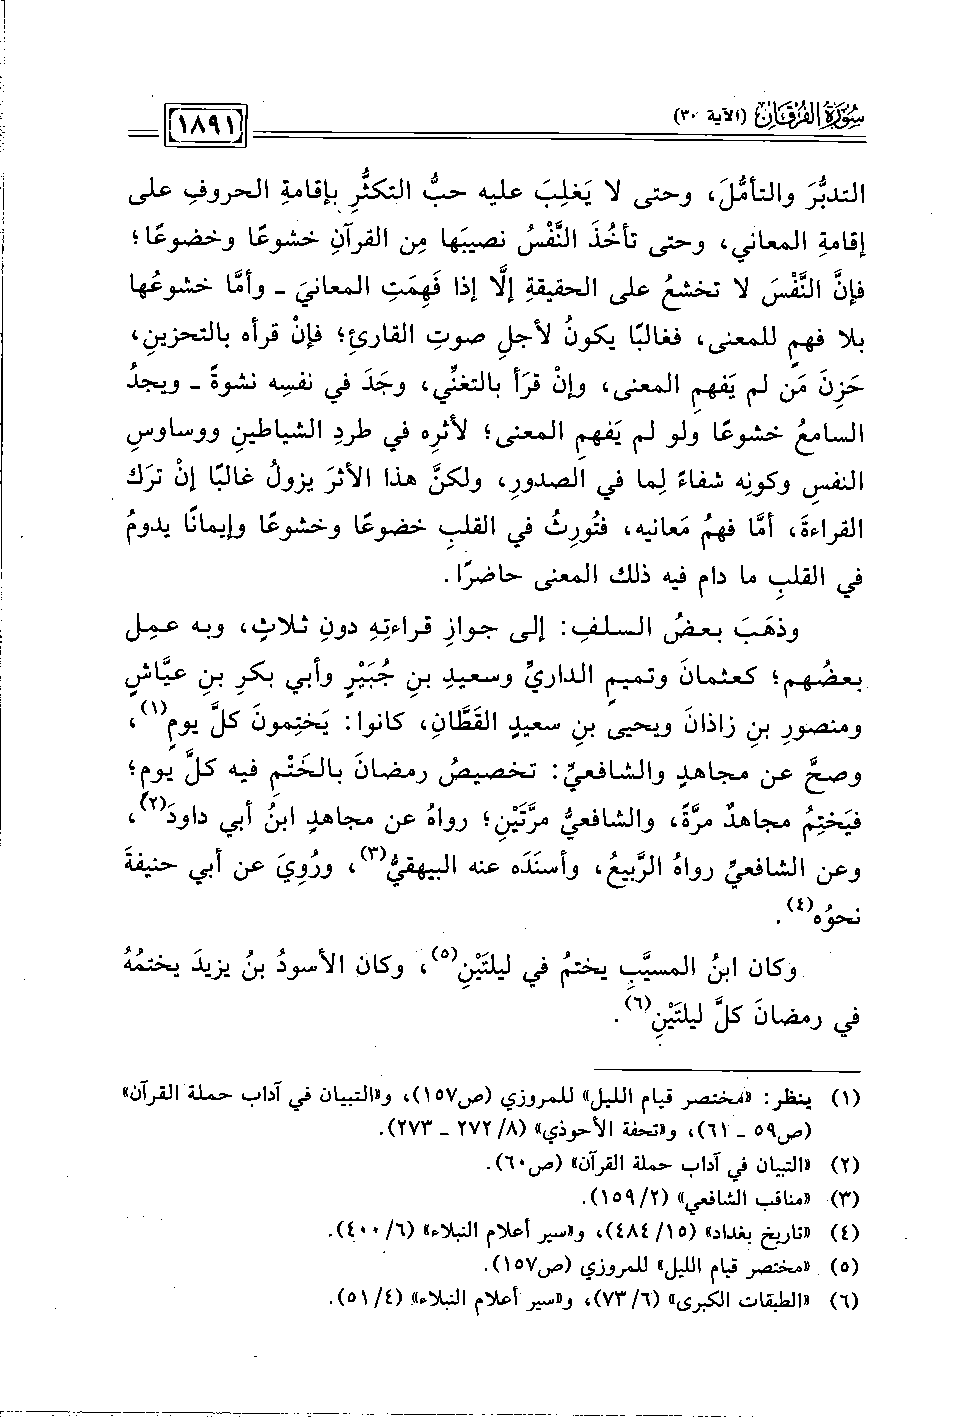 سُورَةُ الفُرْقَانِ (الآية ٣٠)
١٨٩١
التدبُّرَ والتأمُّلَ، وحتى لا يَغلِبَ عليه حبُّ التكثُّرِ بإقامةِ الحروفِ على
إقامةِ المعاني، وحتى تأخُذَ النَّفْسُ نصيبَها مِن القرآنِ خشوعًا وخضوعًا؛
فإنَّ النَّفْسَ لا تخشعُ على الحقيقةِ إلَّا إذا فَهِمَتِ المعانيَ ـ وأمَّا خشوعُها
بلا فهمٍ للمعنى، فغالبًا يكونُ لأجلِ صوتِ القارئِ؛ فإنْ قرأه بالتحزينِ،
حَزِنَ مَن لم يَفهمِ المعنى، وإنْ قرَأ بالتغنِّي، وجَدَ في نفسِه نشوةً ـ ويجدُ
السامعُ خشوعًا ولو لم يَفهمِ المعنى؛ لأثرِه في طردِ الشياطينِ ووساوسِ
النفسِ وكونِه شفاءً لِما في الصدورِ، ولكنَّ هذا الأثرَ يزولُ غالبًا إنْ ترَك
القراءةَ، أمَّا فهمُ مَعانيه، فتُورِثُ في القلبِ خضوعًا وخشوعًا وإيمانًا يدومُ
في القلبِ ما دام فيه ذلك المعنى حاضرًا.
وذهَبَ بعضُ السلفِ: إلى جوازِ قراءتِهِ دونِ ثلاثٍ، وبه عمِل
بعضُهم؛ كعثمانَ وتميمٍ الداريِّ وسعيدِ بنِ جُبَيْرٍ وأبي بكرِ بنِ عيَّاشٍ
ومنصورِ بنِ زاذانَ ويحيى بنِ سعيدٍ القطَّانِ، كانوا: يَختِمونَ كلَّ يومٍ(١)،
وصحَّ عن مجاهدٍ والشافعيِّ: تخصيصُ رمضانَ بالخَتْمِ فيه كلَّ يومٍ؛
فيَختِمُ مجاهدٌ مرَّةً، والشافعيُّ مرَّتَيْنِ؛ رواهُ عن مجاهدٍ ابنُ أبي داودَ(٢)،
وعن الشافعيِّ رواهُ الرَّبيعُ، وأسنَدَه عنه البيهقيُّ(٣)، ورُوِيَ عن أبي حنيفةَ
نحوُه(٤).
وكان ابنُ المسيَّبِ يختمُ في ليلتَيْنِ(٥)، وكان الأسودُ بنُ يزيدَ يختمُهُ
في رمضانَ كلَّ ليلتَيْنِ(٦).
(١) ينظر: «مختصر قيام الليل» للمروزي (ص١٥٧)، و«التبيان في آداب حملة القرآن»
(ص٥٩ ـ ٦١)، و«تحفة الأحوذي» (٨/ ٢٧٢ ـ ٢٧٣).
(٢) «التبيان في آداب حملة القرآن» (ص٦٠).
(٣) «مناقب الشافعي» (٢/ ١٥٩).
(٤) «تاريخ بغداد» (١٥/ ٤٨٤)، و«سير أعلام النبلاء» (٦/ ٤٠٠).
(٥) «مختصر قيام الليل» للمروزي (ص١٥٧).
(٦) «الطبقات الكبرى» (٦/ ٧٣)، و«سير أعلام النبلاء» (٤/ ٥١).